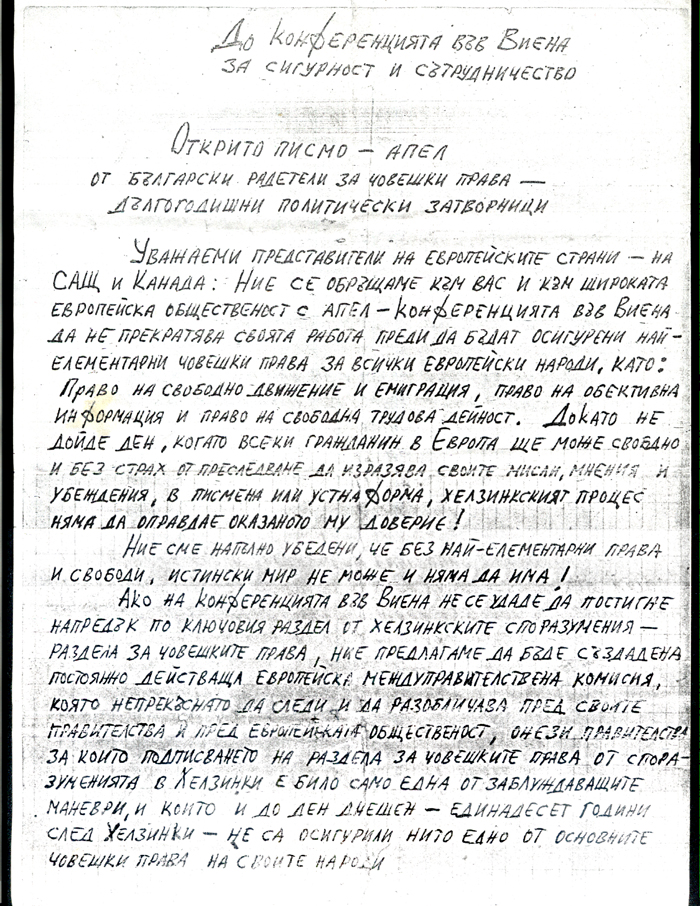 До Конференцията във Виена
за сигурност и сътрудничество
Открито писмо – апел
от български радетели за човешки права –
дългогодишни политически затворници
Уважаеми представители на европейските страни – на
САЩ и Канада: Ние се обръщаме към вас и към широката
европейска общественост с апел – Конференцията във Виена
да не прекратява своята работа преди да бъдат осигурени най-
елементарни човешки права за всички европейски народи, като:
Право на свободно движение и емиграция, право на обективна
информация и право на свободна трудова дейност. Докато не
дойде ден, когато всеки гражданин в Европа ще може свободно
и без страх от преследване да изразява своите мисли, мнения и
убеждения, в писмена или устна форма, хелзинкският процес
няма да оправдае оказаното му доверие!
Ние сме напълно убедени, че без най-елементарни права
и свободи, истински мир не може и няма да има!
Ако на Конференцията във Виена не се удаде да постигне
напредък по ключовия раздел от хелзинкските споразумения –
раздела за човешките права, ние предлагаме да бъде създадена
постоянно действаща европейска междуправителствена комисия,
която непрекъснато да следи и да разобличава пред своите
правителства и пред европейската общественост, онези правителства
за които подписването на раздела за човешките права от спора-
зуменията в Хелзинки е било само една от заблуждаващите
маневри, и които и до ден днешен – единадесет години
след Хелзинки – не са осигурили нито едно от основните
човешки права на своите народи